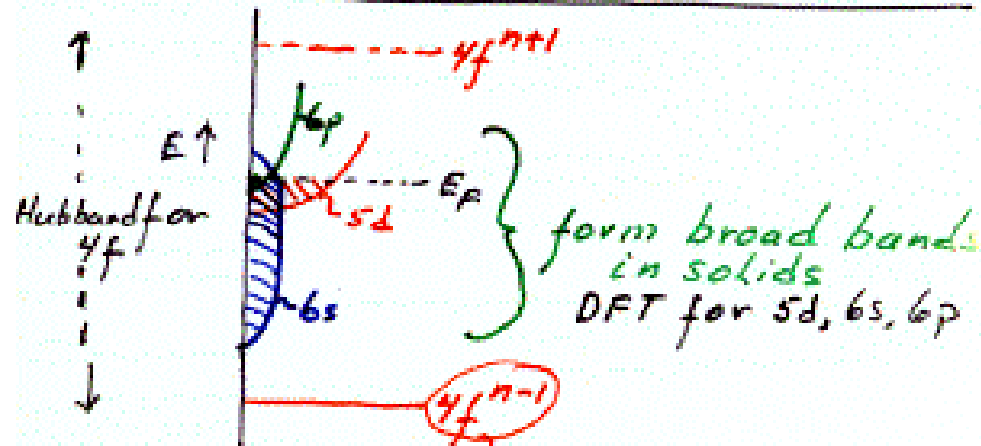 4f n+1
6p
E ↑
E_F
Hubband for
4f
5d
form broad bands
in solids
6s
DFT for 5d, 6s, 6p
4f n-1